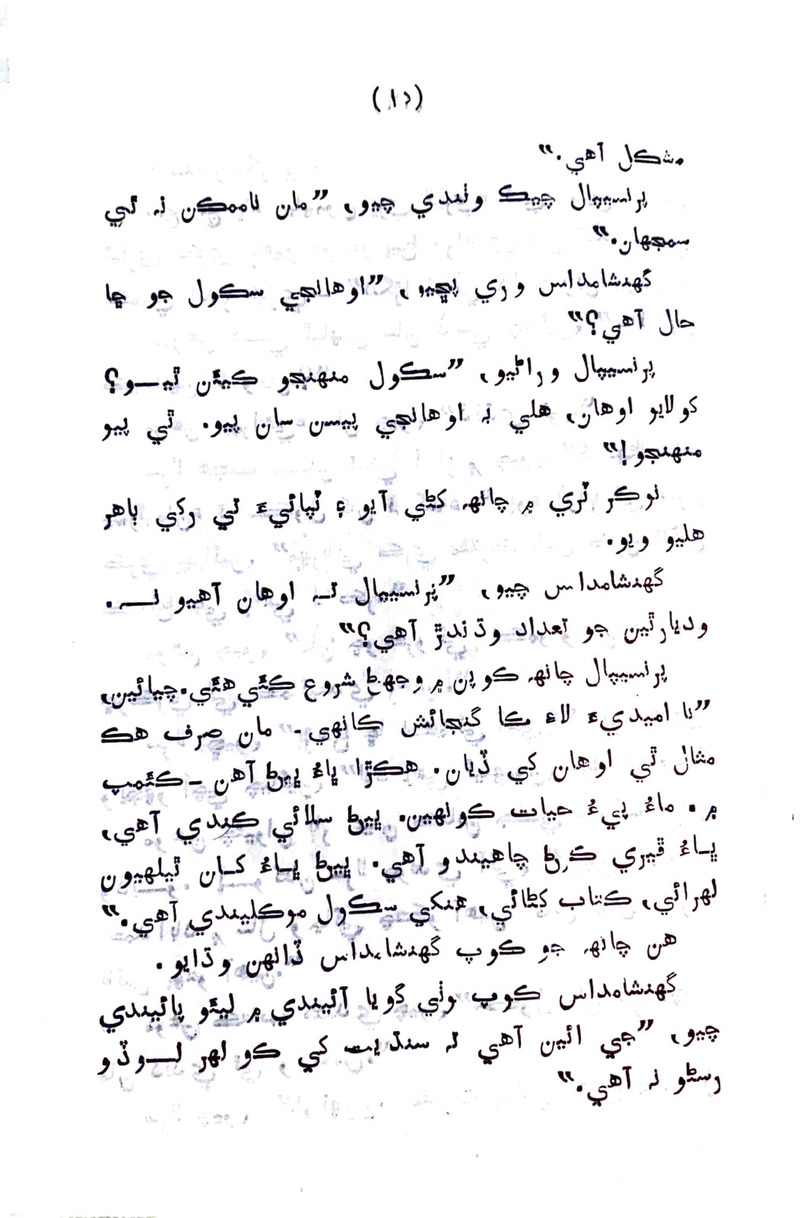 (۱۵)
مشڪل آهي.“
پرنسيپال چيڪ وٺندي چيو، ”مان ناممڪن نہ ٿي
سمجهان.“
گهنشامداس وري پڇيو، ”اوهانجي سڪول جو ڇا
حال آهي؟“
پرنسيپال وراڻيو، ”سڪول منهنجو ڪيئن ٿيـــو؟
کولايو اوهان، هلي بہ اوهانجي پيسن سان پيو. ٿي پيو
منهنجو!“
نوڪر ٽري ۾ چانهہ کڻي آيو ۽ ٽپائيءَ تي رکي ٻاهر
هليو ويو.
گهنشامداس چيو، ”پرنسيپال تـہ اوهان آهيو نـــہ.
وديارٿين جو تعداد وڌندڙ آهي؟“
پرنسيپال چانهہ ڪوپن ۾ وجهڻ شروع ڪئي هئي. چيائين،
”نا اميديءَ لاءِ ڪا گنجائش ڪانهي - مان صرف هڪ
مثال ٿي اوهان کي ڏيان. هڪڙا ڀاءُ ڀيڻ آهن - ڪئمپ
۾. ماءُ پيءُ حيات ڪونهين. ڀيڻ سلائي ڪندي آهي،
ڀـاءُ ڦيري ڪرڻ چاهيندو آهي. ڀيڻ ڀـاءُ کـان ٿيلهيون
لهرائي، ڪتاب کڻائي، هنکي سڪول موڪليندي آهي.“
هن چانهہ جو ڪوپ گهنشامداس ڏانهن وڌايو.
گهنشامداس ڪوپ وٺي گويا آئيندي ۾ ليئو پائيندي
چيو، ”جي ائين آهي تہ سنڌيت کي ڪو لهر لـــوڏو
رسڻو نہ آهي.“